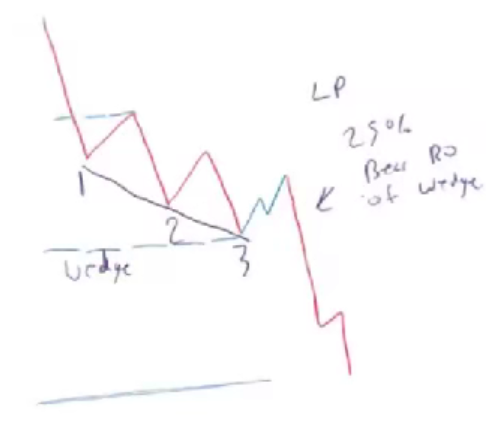 LP
25%
Bear BO
of wedge
1
2
wedge
3